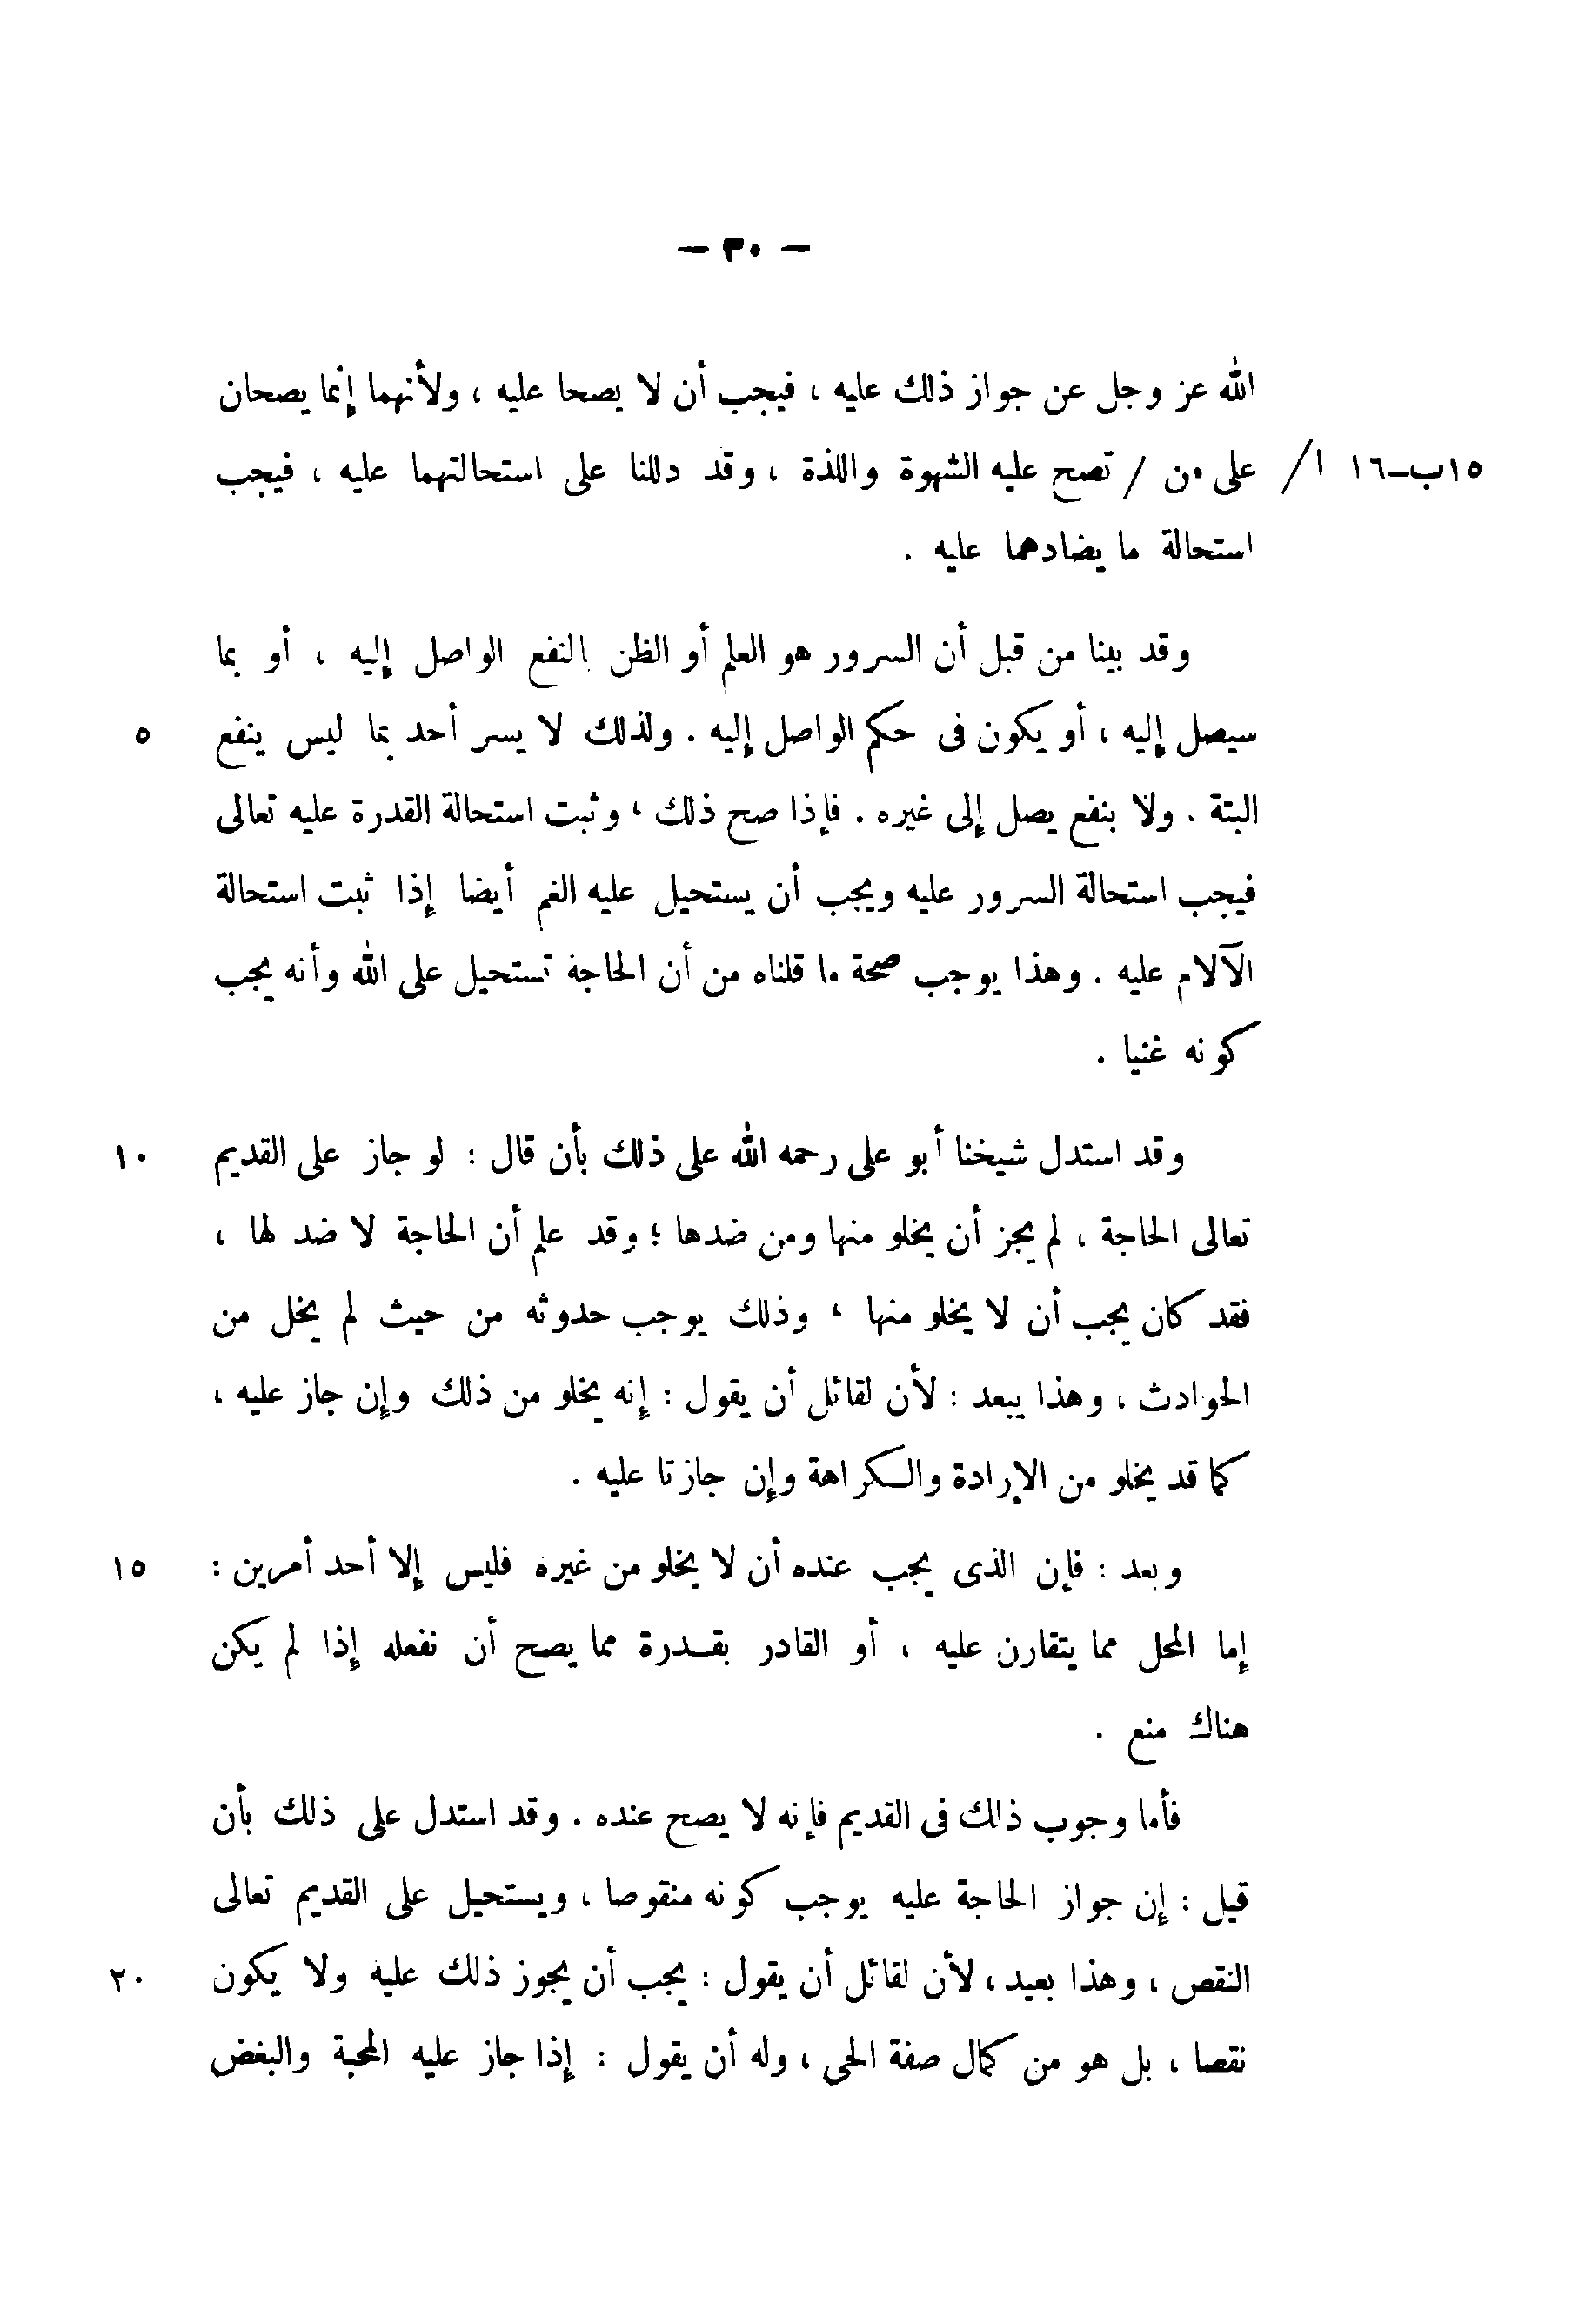 — ٣٠ —
الله عز وجل عن جواز ذلك عليه ، فيجب أن لا يصحا عليه ، ولأنهما إنما يصحان
١٥ب-١٦ ا/ على من / تصح عليه الشهوة واللذة ، وقد دللنا على استحالتهما عليه ، فيجب
استحالة ما يضادهما عليه .
وقد بينا من قبل أن السرور هو العلم أو الظن بالنفع الواصل إليه ، أو بما
سيصل إليه ، أو يكون فى حكم الواصل إليه . ولذلك لا يسر أحد بما ليس ينفع ٥
البتة . ولا بنفع يصل إلى غيره . فإذا صح ذلك ، وثبت استحالة القدرة عليه تعالى
فيجب استحالة السرور عليه ويجب أن يستحيل عليه الغم أيضا إذا ثبت استحالة
الآلام عليه . وهذا يوجب صحة ما قلناه من أن الحاجة تستحيل على الله وأنه يجب
كونه غنيا .
وقد استدل شيخنا أبو على رحمه الله على ذلك بأن قال : لو جاز على القديم ١٠
تعالى الحاجة ، لم يجز أن يخلو منها ومن ضدها ؛ وقد علم أن الحاجة لا ضد لها ،
فقد كان يجب أن لا يخلو منها ، وذلك يوجب حدوثه من حيث لم يخل من
الحوادث ، وهذا يبعد : لأن لقائل أن يقول : إنه يخلو من ذلك وإن جاز عليه ،
كما قد يخلو من الإرادة والكراهة وإن جازتا عليه .
وبعد : فإن الذى يجب عنده أن لا يخلو من غيره فليس إلا أحد أمرين : ١٥
إما المحل مما يتقارن عليه ، أو القادر بقدرة مما يصح أن نفعله إذا لم يكن
هناك منع .
فأما وجوب ذلك فى القديم فإنه لا يصح عنده . وقد استدل على ذلك بأن
قيل : إن جواز الحاجة عليه يوجب كونه منقوصا ، ويستحيل على القديم تعالى
النقص ، وهذا بعيد ، لأن لقائل أن يقول : يجب أن يجوز ذلك عليه ولا يكون ٢٠
نقصا ، بل هو من كمال صفة الحى ، وله أن يقول : إذا جاز عليه المحبة والبغض